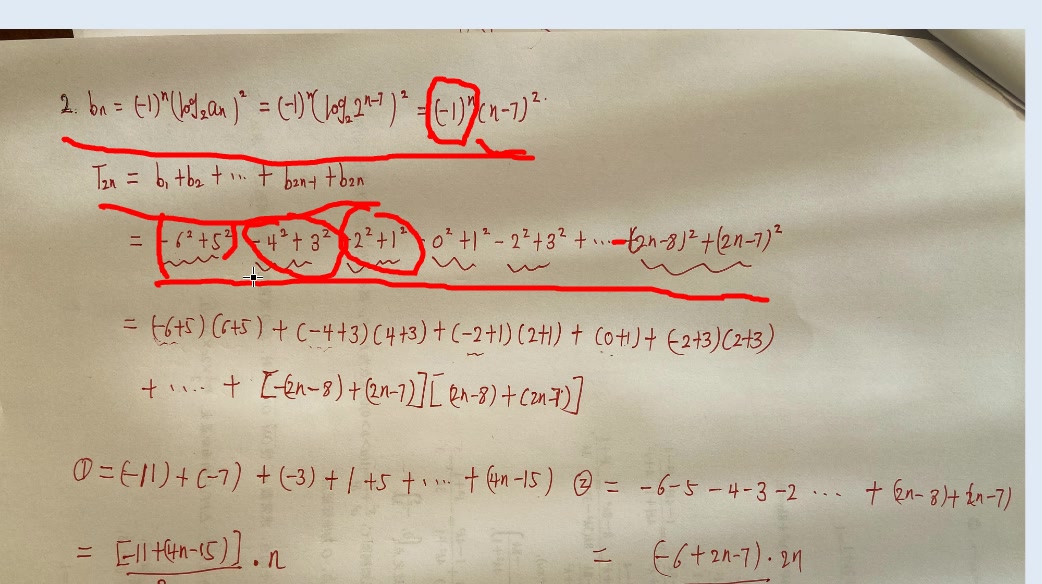 2. bn = (-1)ⁿ(log₂an)² = (-1)ⁿ(log₂2ⁿ⁻⁷)² = (-1)ⁿ(n-7)².
T₂n = b₁ + b₂ + ... + b₂n₋₁ + b₂n
= -6²+5² -4²+3² -2²+1² -0²+1² -2²+3² + ... -(2n-8)²+(2n-7)²
= (-6+5)(6+5) + (-4+3)(4+3) + (-2+1)(2+1) + (0+1) + (-2+3)(2+3)
+ .... + [-(2n-8)+(2n-7)][(2n-8)+(2n-7)]
① = (-11)+(-7)+(-3)+1+5+....+(4n-15) ② = -6-5-4-3-2 ... +(2n-8)+(2n-7)
= [-11+(4n-15)] · n = (-6+2n-7)·2n